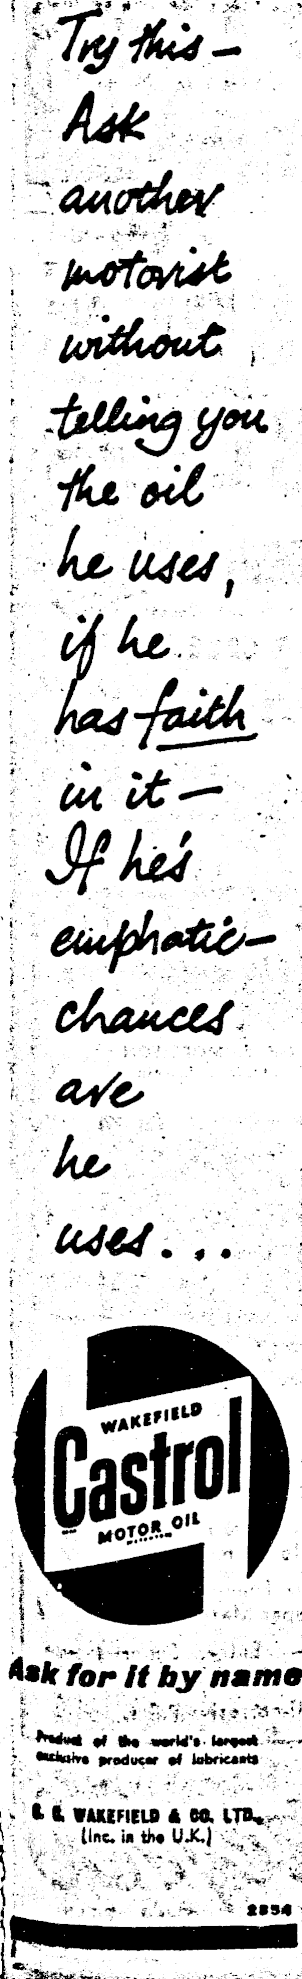 Try this –
Ask
another
motorist
without
telling you
the oil
he uses,
if he
has faith
in it –
If he's
emphatic –
chances
are
he
uses...
WAKEFIELD
Castrol
MOTOR OIL
Ask for it by name
Product of the world's largest
exclusive producer of lubricants
C. C. WAKEFIELD & CO. LTD.,
(Inc. in the U.K.)
2854